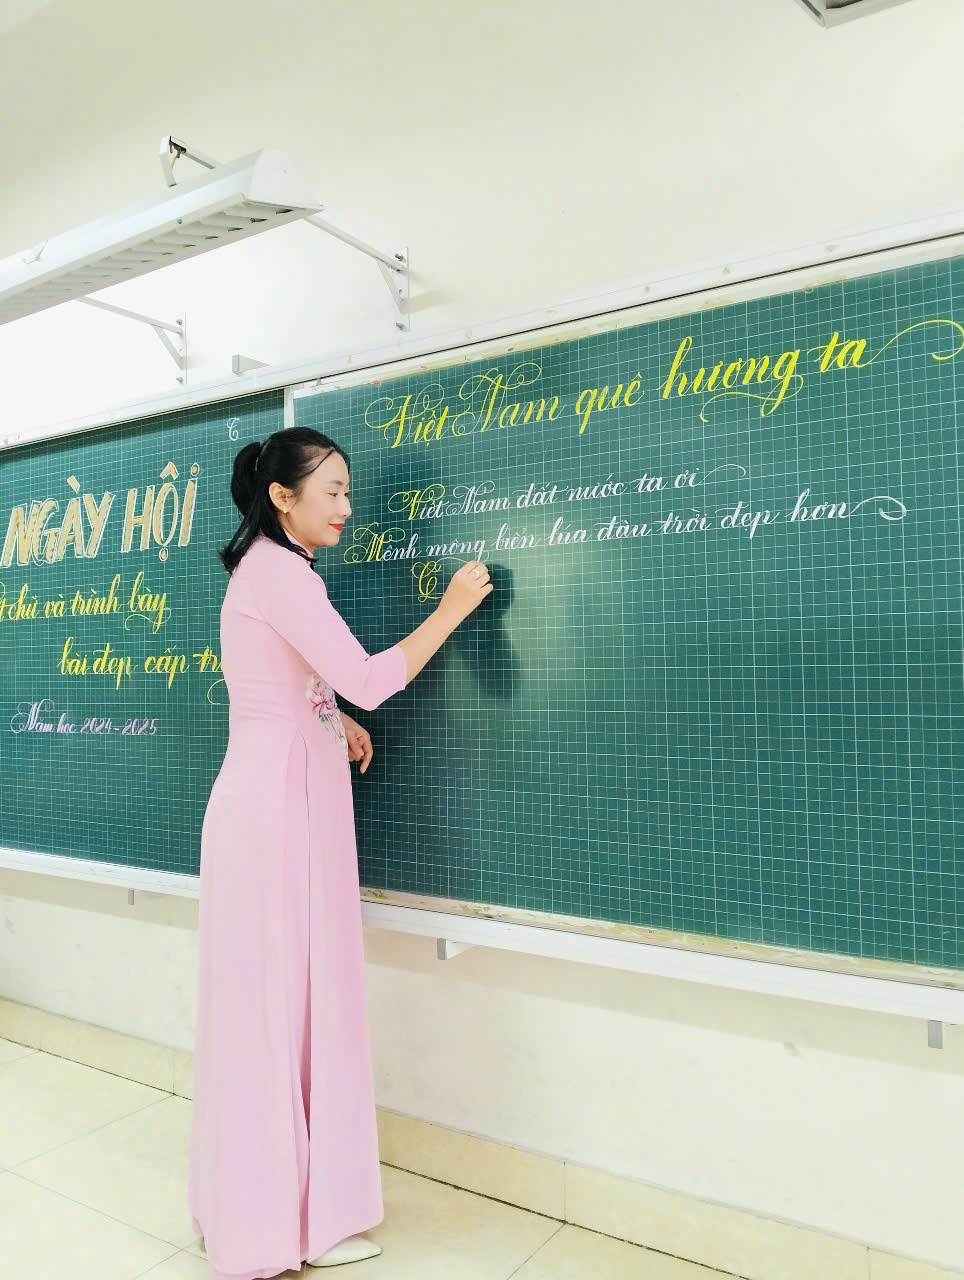 NGÀY HỘI
chữ và trình bày
bài đẹp cấp
Năm học 2024-2025
Việt Nam quê hương ta
Việt Nam đất nước ta ơi
Mênh mông biển lúa đâu trời đẹp hơn